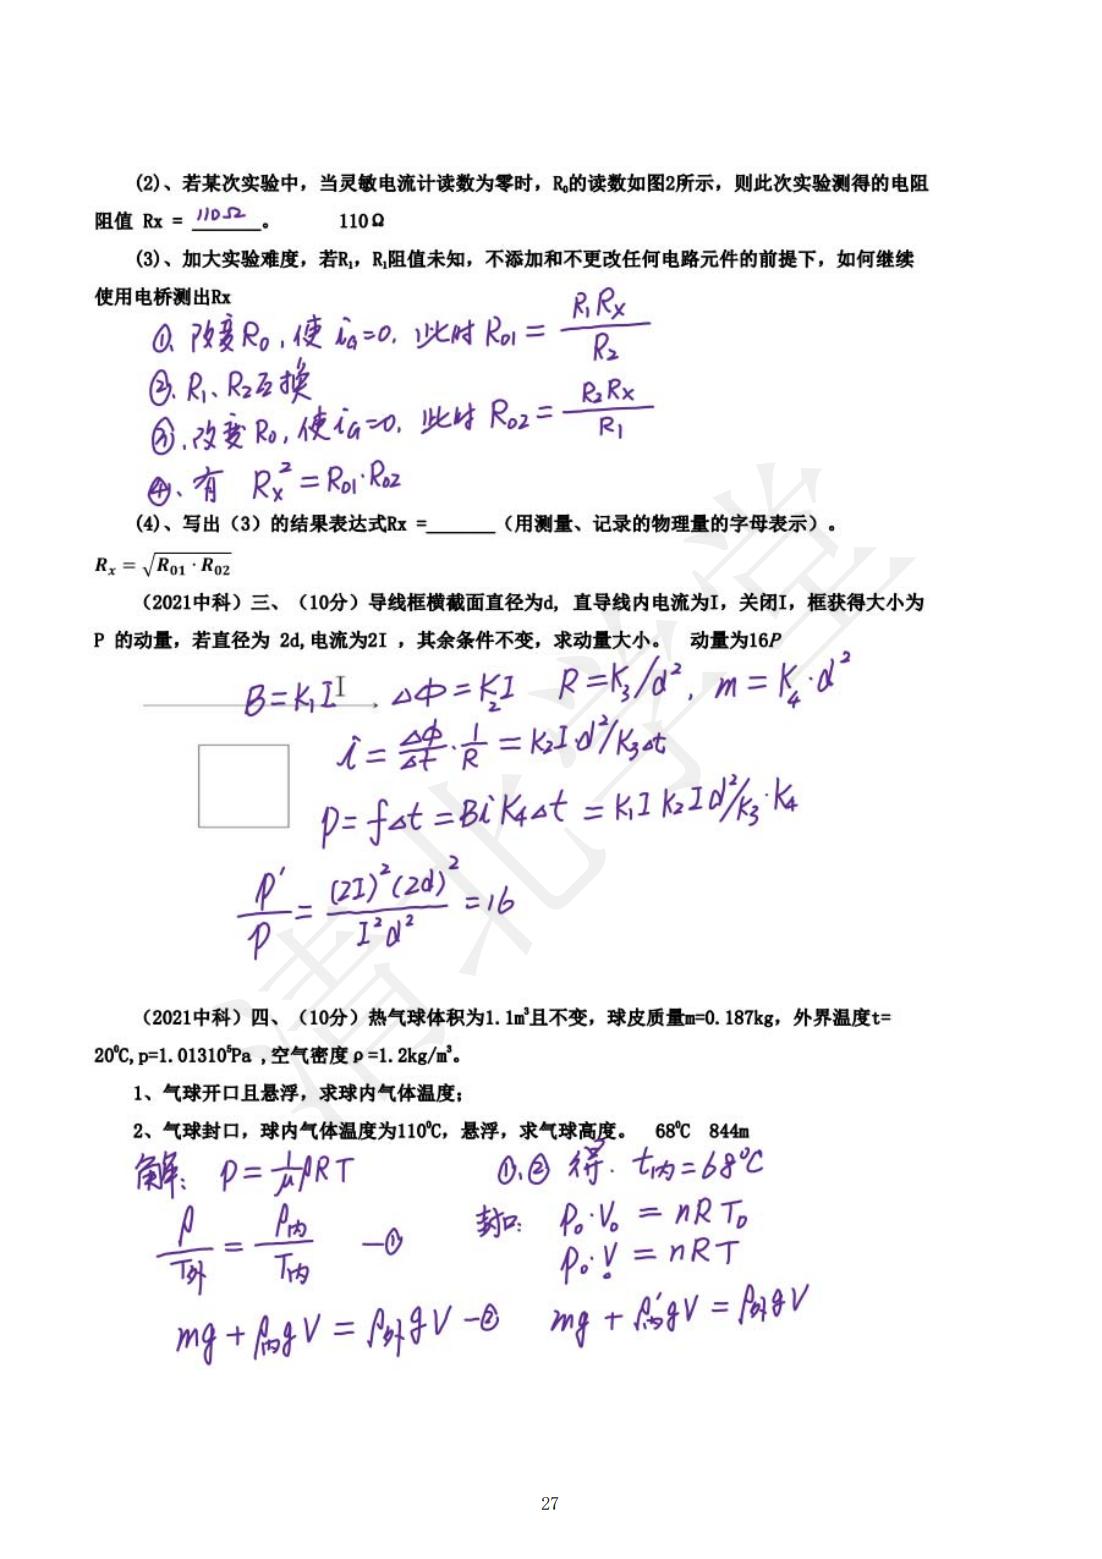 (2)、若某次实验中，当灵敏电流计读数为零时，R₀的读数如图2所示，则此次实验测得的电阻
阻值 Rx = 110Ω 。 110Ω
(3)、加大实验难度，若R₁，R₁阻值未知，不添加和不更改任何电路元件的前提下，如何继续
使用电桥测出Rx
①. 改变R₀，使 i_G=0. 此时 R₀₁ = R₁Rx/R₂
②. R₁、R₂互换
③. 改变R₀，使i_G=0. 此时 R₀₂ = R₂Rx/R₁
④、有 Rx² = R₀₁·R₀₂
(4)、写出（3）的结果表达式Rx =______（用测量、记录的物理量的字母表示）。
Rₓ = √(R₀₁ · R₀₂)
（2021中科）三、（10分）导线框横截面直径为d, 直导线内电流为I，关闭I，框获得大小为
P 的动量，若直径为 2d, 电流为2I ，其余条件不变，求动量大小。 动量为16P
B=K₁I , ΔΦ=K₂I R=K₃/d², m=K₄·d²
i = ΔΦ/Δt · 1/R = K₂I·d²/K₃Δt
p = fΔt = BiK₄Δt = K₁I K₂I d²/K₃ · K₄
p'/p = (2I)²(2d)²/I²d² = 16
（2021中科）四、（10分）热气球体积为1.1m³且不变，球皮质量m=0.187kg，外界温度t=
20⁰C, p=1.01310⁵Pa ,空气密度ρ=1.2kg/m³。
1、气球开口且悬浮，求球内气体温度；
2、气球封口，球内气体温度为110⁰C，悬浮，求气球高度。 68⁰C 844m
解: P = 1/μ ρRT ①.② 得. t内=68°C
ρ/T外 = ρ内/T内 —① 封口: P₀·V₀ = nRT₀
P₀·V₀ = nRT
mg + ρ内gV = ρ外gV —② mg + ρ内'gV = ρ外gV
27
清北学堂